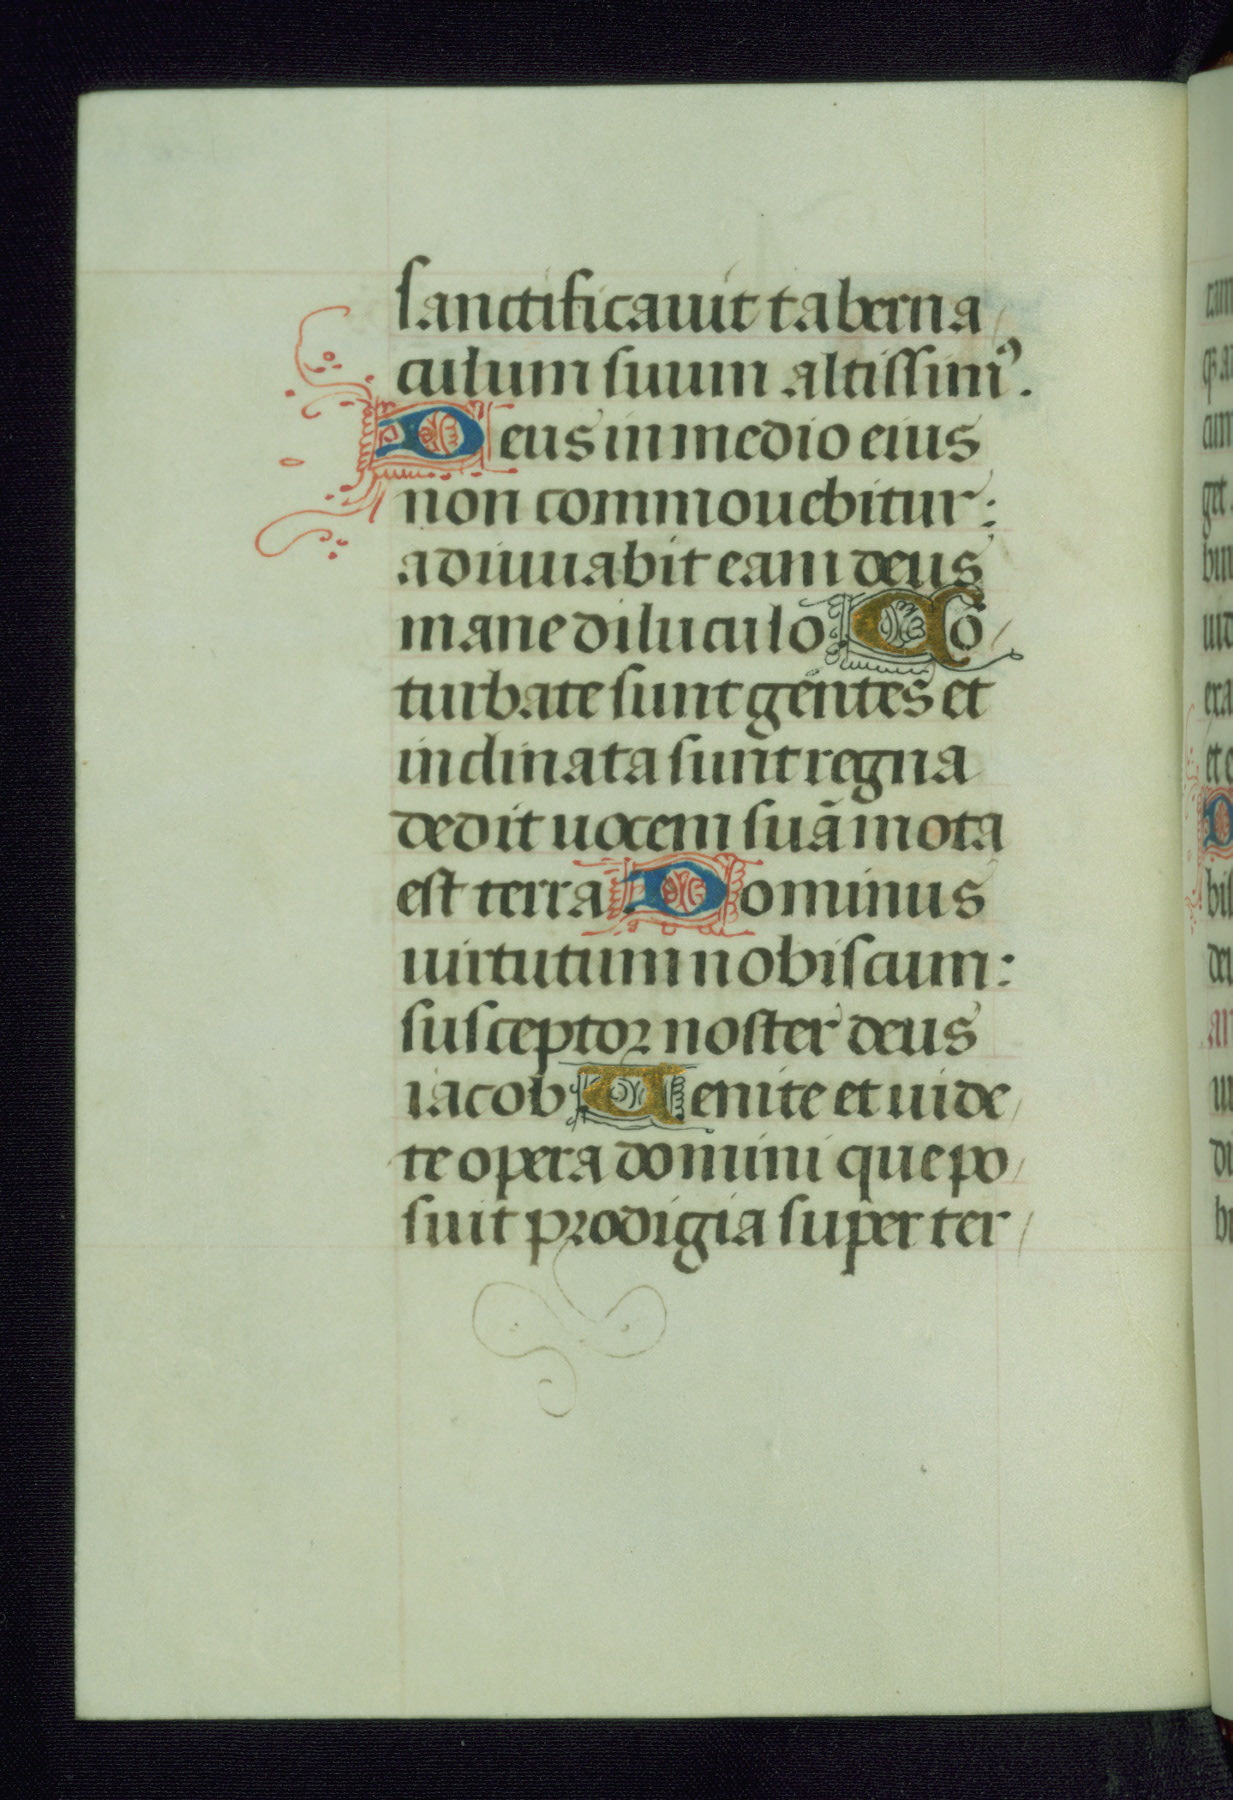 sanctificauit taberna
culum suum altissimꝰ.
Deus in medio eius
non commouebitur:
adiuuabit eam deus
mane diluculo Cõ
turbate sunt gentes et
inclinata sunt regna
dedit uocem suã mota
est terra Dominus
uirtutum nobiscum:
susceptor noster deus
iacob Uenite et uide
te opera domini que po
suit prodigia super ter